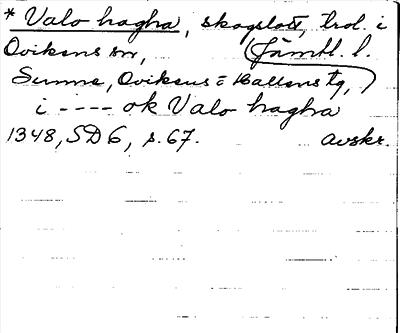 * Valo hagha, skogslott, trol. i
Ovikens sn,
(Jämtl. l.
Sunne, Ovikens o Hallens tg,)
i ---- ok Valo hagha
1348, SD 6, s. 67. Avskr.